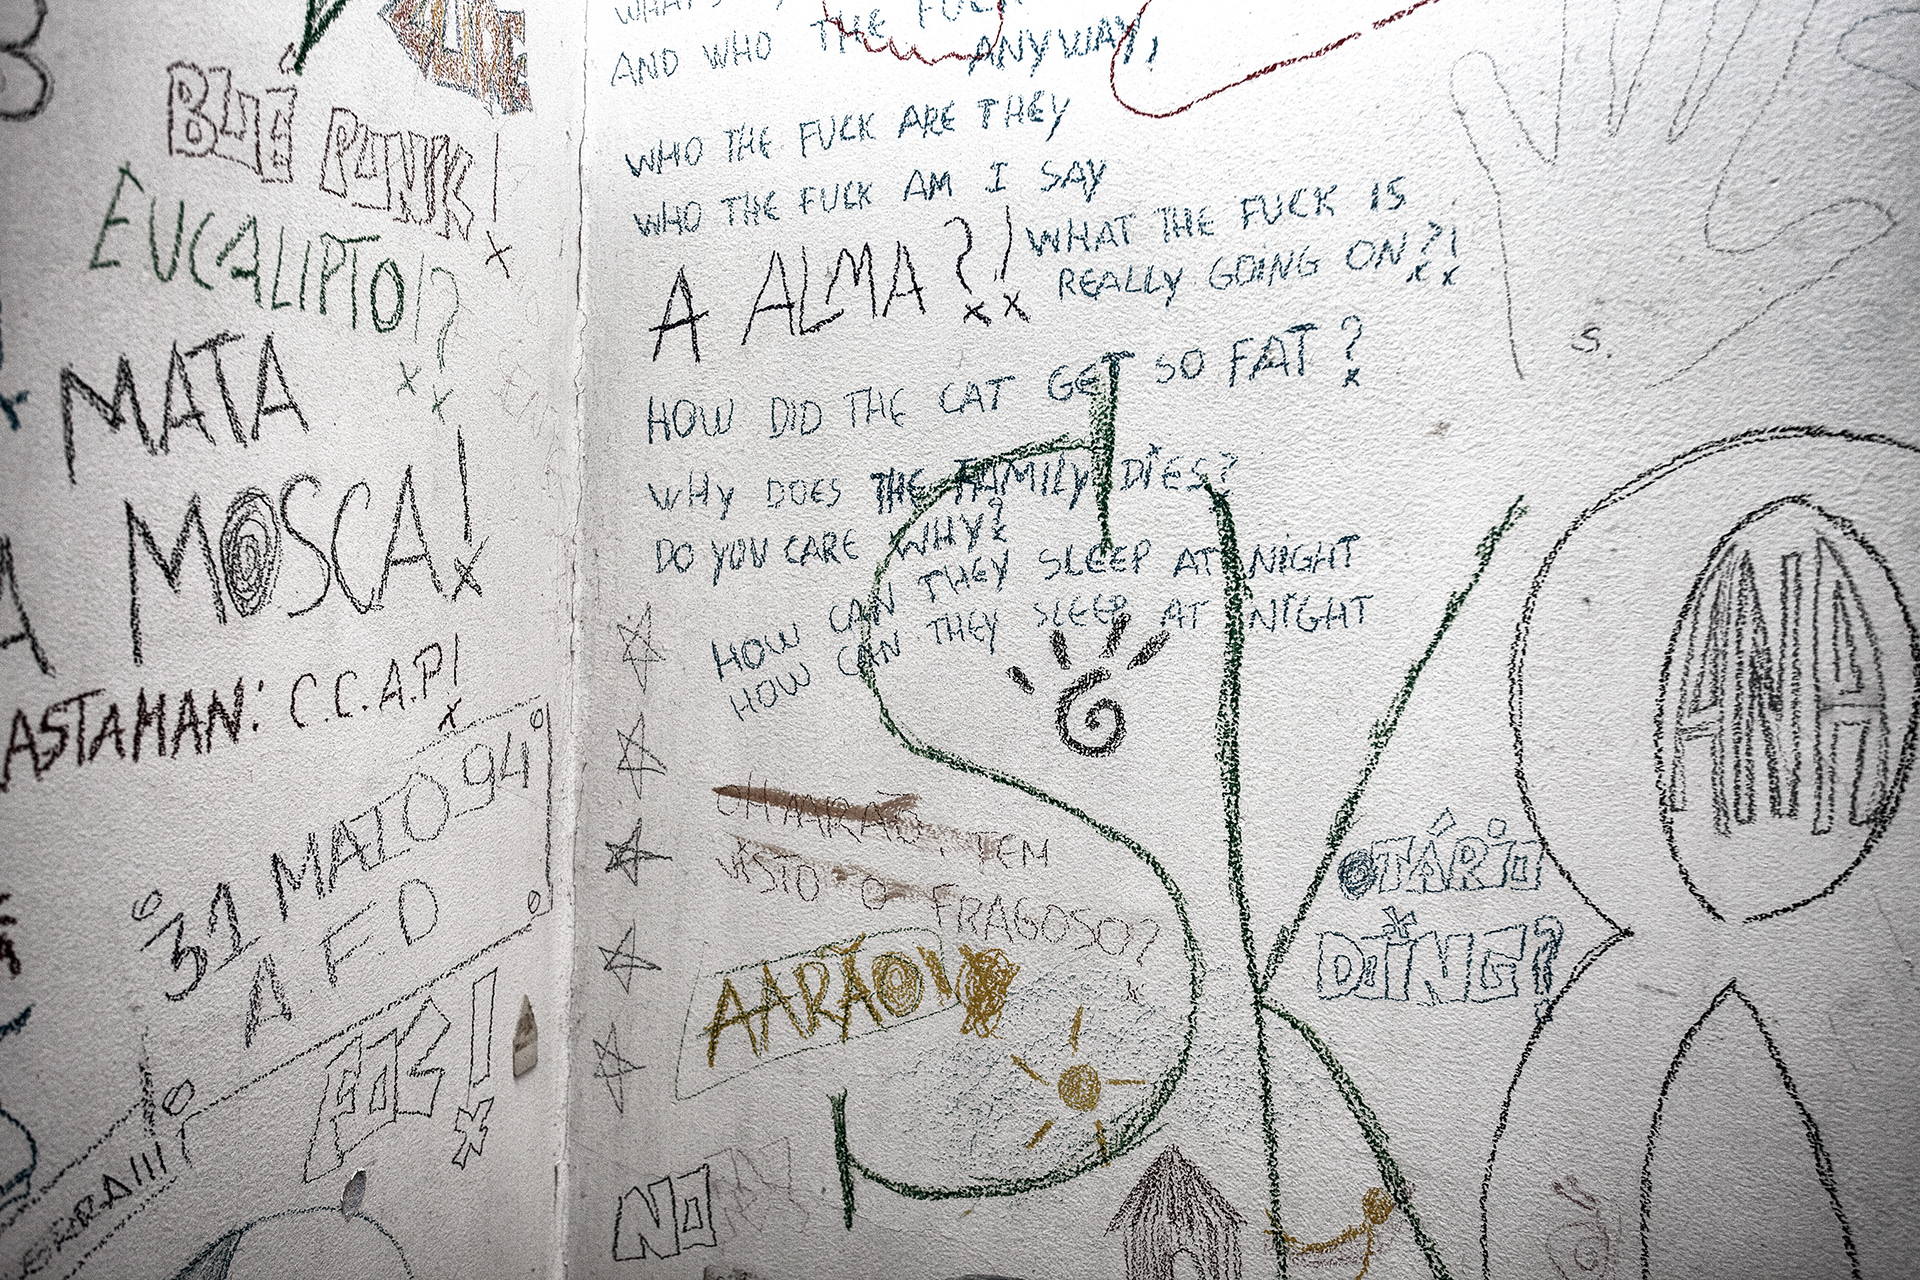 BUÉ PUNK!
EUCALIPTO!?
MATA
MOSCA!
ASTAMAN: C.C.A.P!
31 MAIO 94
A.F.D
EHS!
WHAT'S
AND WHO THE FUCK
ANYWAY,
WHO THE FUCK ARE THEY
WHO THE FUCK AM I SAY
A ALMA?!
WHAT THE FUCK IS
REALLY GOING ON?!
HOW DID THE CAT GET SO FAT?
WHY DOES THE FAMILY DIES?
DO YOU CARE WHY?
HOW CAN THEY SLEEP AT NIGHT
HOW CAN THEY SLEEP AT NIGHT
S.
CHAARÃO, TEM
VISTO O FRAGOSO?
AARÃO!
OTÁRIO
DOING?
ANA
NO
SK